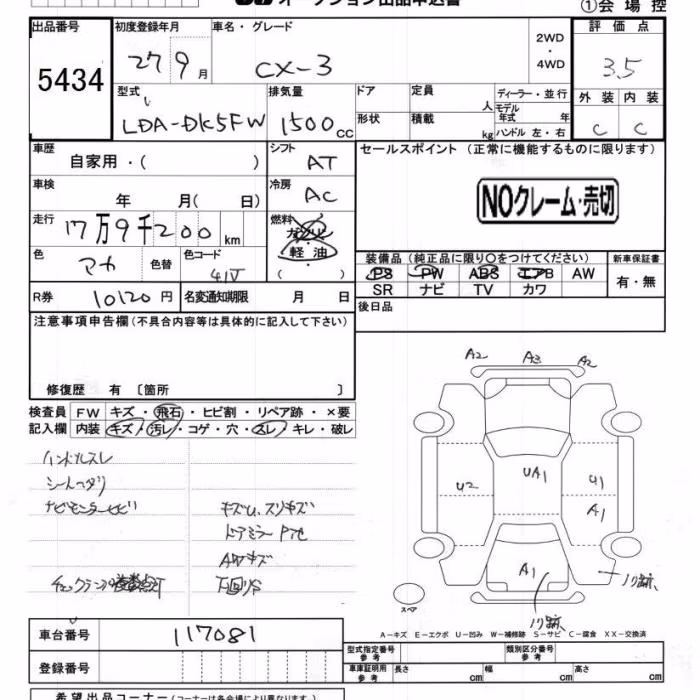 オークション出品申込書
①会場控
出品番号
5434
初度登録年月
27 9月
車名・グレード
CX-3
2WD
・
4WD
評価点
3.5
外装 内装
C C
型式
LDA-DK5FW
排気量
1500cc
ドア
定員
人
形状
積載
kg
ディーラー・並行
モデル年式 年
ハンドル 左・右
車歴
自家用・( )
シフト
AT
セールスポイント (正常に機能するものに限ります)
NOクレーム・売切
車検
年 月( 日)
冷房
AC
走行
17万9千200km
燃料
ガソリン
軽油
( )
色
アカ
色替
色コード
41V
装備品 (純正品に限り○をつけてください)
PS PW ABS エアB AW
SR ナビ TV カワ
新車保証書
有・無
R券 10120円
名変通知期限 月 日
後日品
注意事項申告欄(不具合内容等は具体的に記入して下さい)
修復歴 有 〔箇所 〕
検査員記入欄
FW キズ・飛石・ヒビ割・リペア跡・×要
内装 キズ・汚レ・コゲ・穴・スレ・キレ・破レ
ハンドルスレ
シートヘタリ
ナビモニターヒビ
キズU、スリキズ
ドアミラーPカ
AWキズ
下回リサ
A2 A3 A2
UA1
U2
U1
A1
A1
ノリ跡
ノリ跡
スペア
A-キズ E-エクボ U-凹み W-補修跡 S-サビ C-腐食 XX-交換済
車台番号
117081
登録番号
型式指定番号
参考
類別区分番号
参考
車庫証明用
参考
長さ cm
幅 cm
高さ cm
希望出品コーナー(コーナーは各会場により異なります)